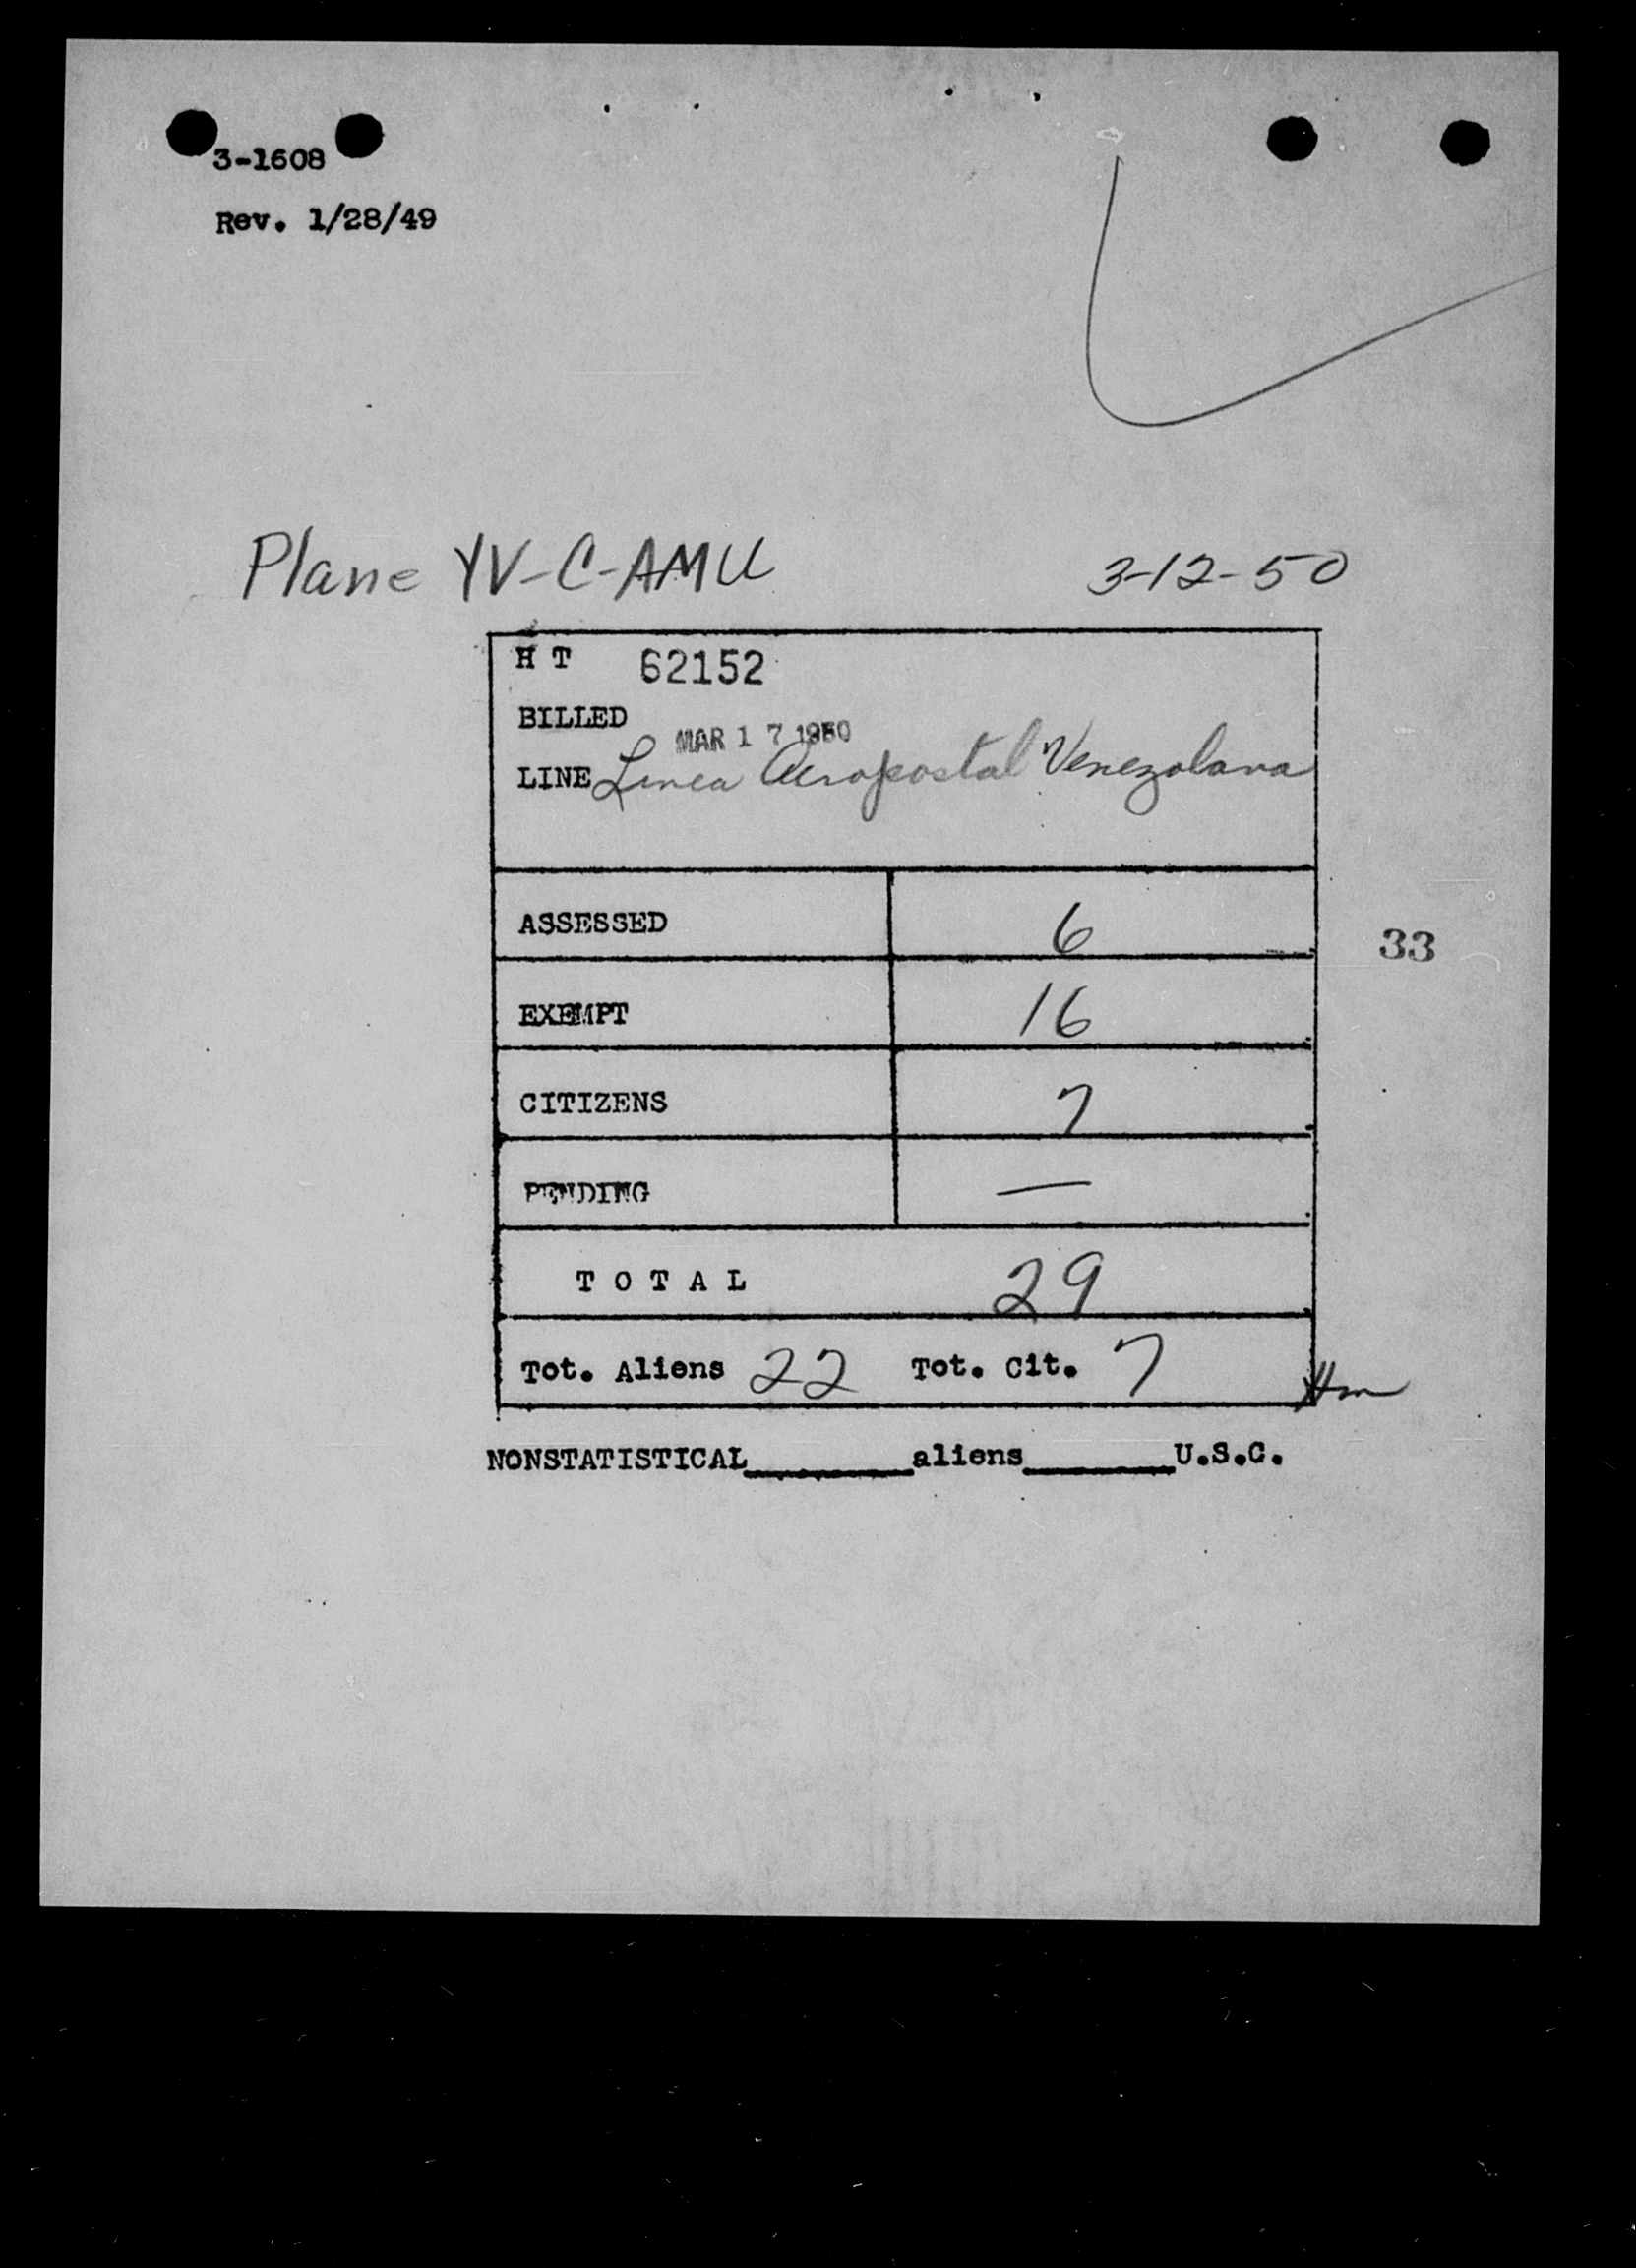 3-1608
Rev. 1/28/49
Plane YV-C-AMU 3-12-50
H T 62152
BILLED MAR 17 1950
LINE Linea Aeropostal Venezolana
ASSESSED 6
33
EXEMPT 16
CITIZENS 7
PENDING —
T O T A L 29
Tot. Aliens 22 Tot. Cit. 7
NONSTATISTICAL________aliens________U.S.C.